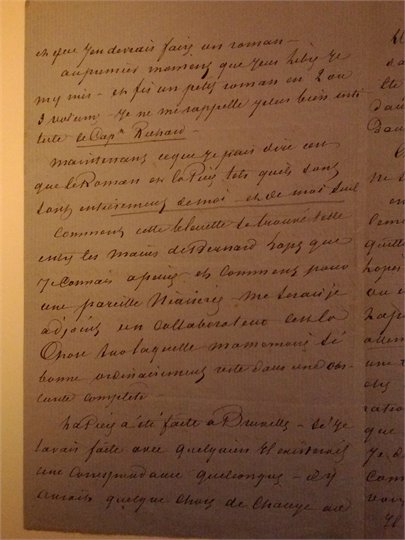 et que j'en devrais faire un roman —
au premier moment que j'eus libre je
my mis — et fis un petit roman en 2 ou
3 volumes — je ne me rappelle plus bien inti
tulé le Capne Richard —
maintenant ce que je puis dire c'est
que le Roman et la Pièce tels qu'ils sont
sont entièrement de moi et de moi seul
Comment cette brochure se trouve t elle
entre les mains de Bernard Lopez que
je connais a peine et comment pour
une pareille niaiserie me serais je
adjoint un collaborateur c'est la
chose sur laquelle ma memoire si
bonne ordinairement reste dans une obs
curité complete
La Pièce a été faite a Bruxelles — si je
l'avais faite avec quelqu'un il existerait
une correspondance quelconque — il y
aurait quelque chose de change au